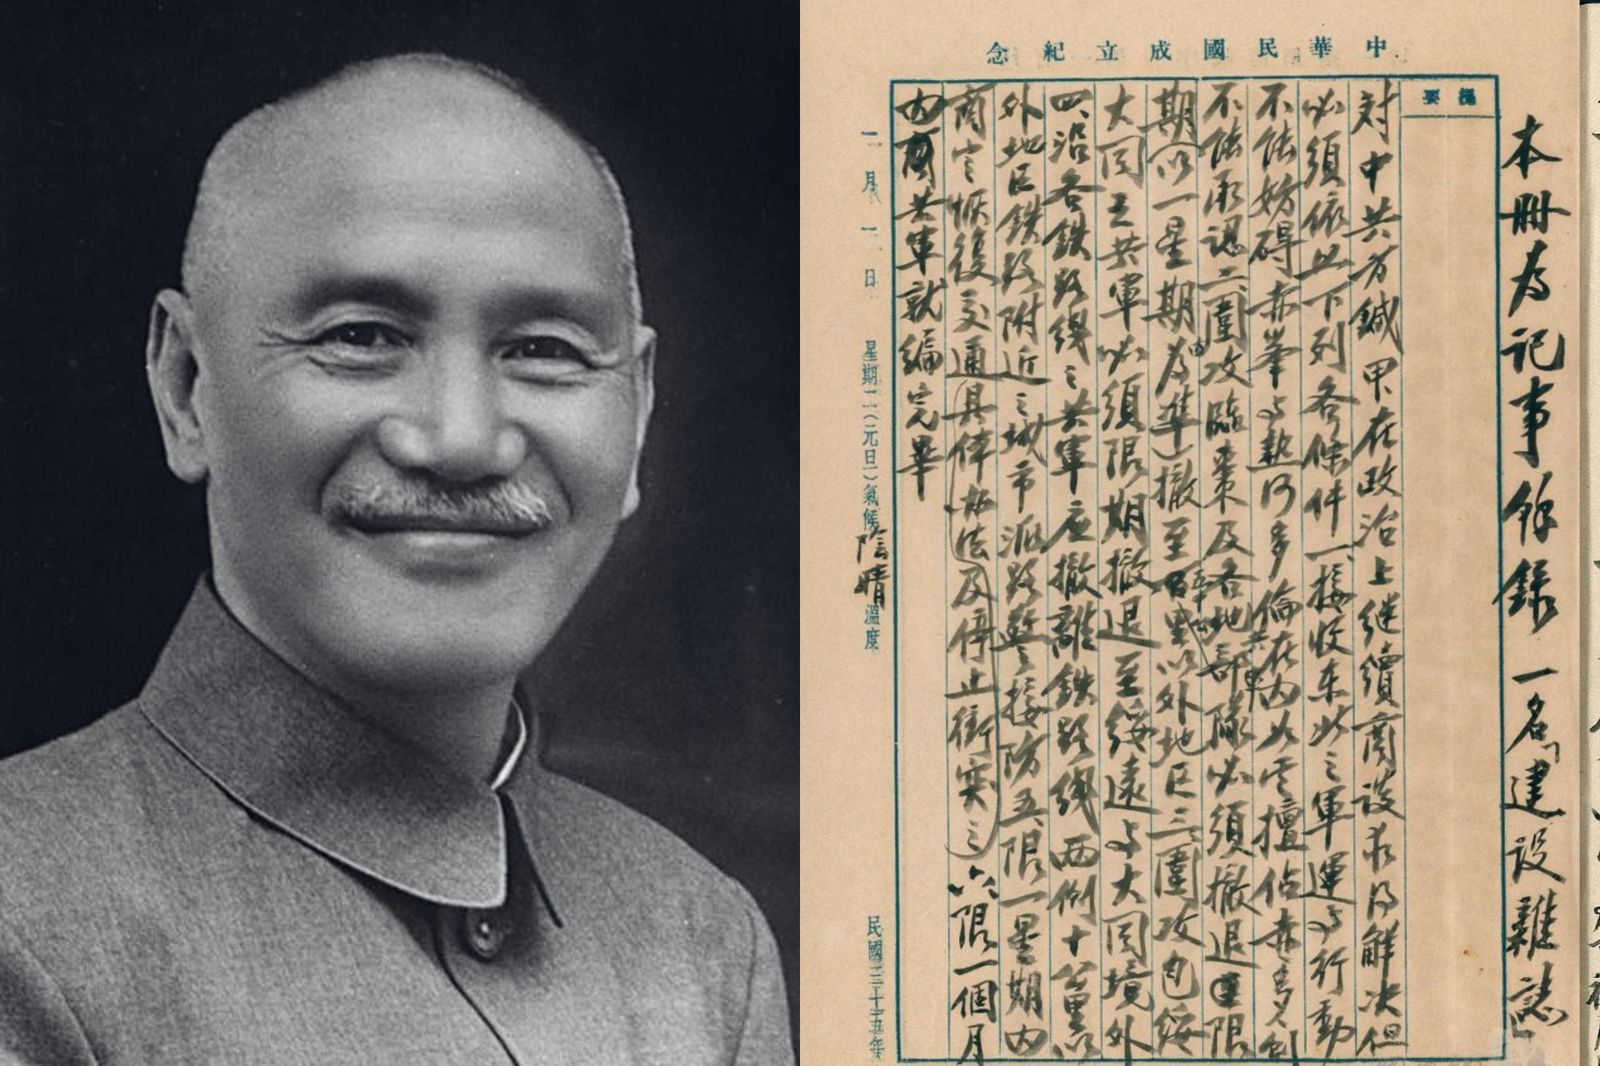 中華民國成立紀念
提要
本冊為記事錄 一名「建設雜誌」
対中共方鍼甲在政治上继續商談求得解决但
必須依照下列各條件一、接收东北之軍運与行動
不能妨碍赤峯与热河多倫在內如共軍擅佔赤多則
不能承認二、圍攻臨棗及各地部隊必須撤退限
期以一星期為準撤至以外地区三、圍攻包綏
大同之共軍必須限期撤退至綏遠与大同境外
四、沿各鉄路綫之共軍应撤離鉄路綫两側十公里以
外地区鉄路附近之城市派路警接防五、限一星期內
商定恢復交通具体办法及停止衝突之六、限一個月
內商共軍就編完畢
一月一日 星期二(元日)氣候陰晴 溫度
民國三十五年